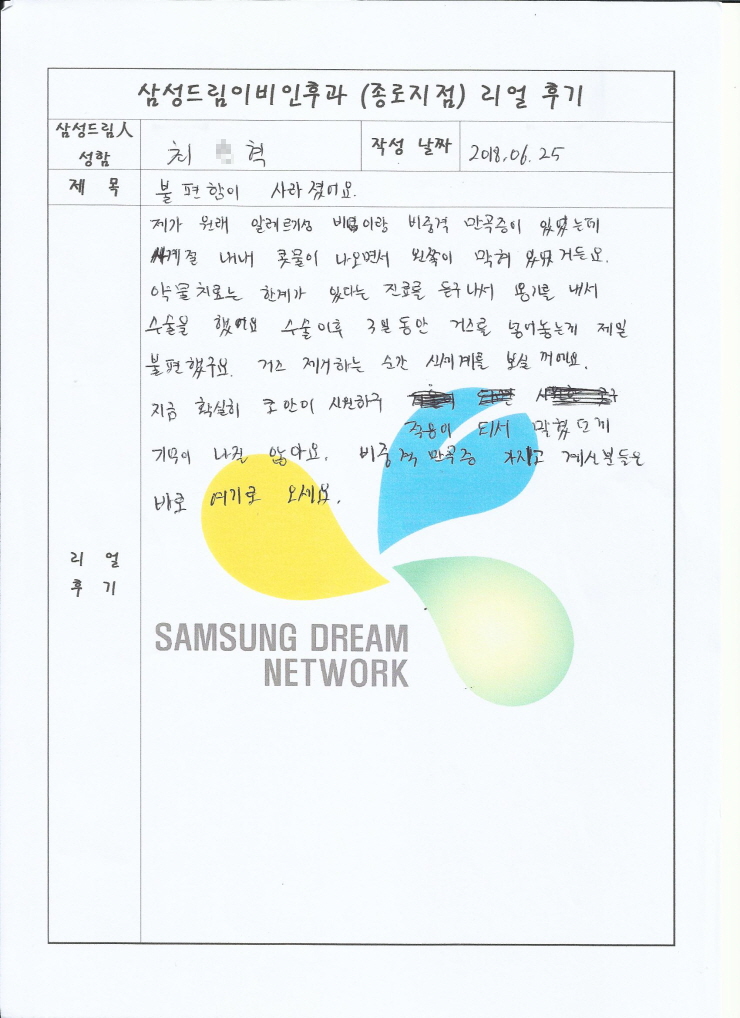 삼성드림이비인후과 (종로지점) 리얼 후기
삼성드림人 성함
최 혁
작성 날짜
2018.06.25
제 목
불편함이 사라졌어요.
리 얼
후 기
제가 원래 알레르기성 비염이랑 비중격 만곡증이 있었는데
계절 내내 콧물이 나오면서 왼쪽이 막혀 있었거든요.
약물치료는 한계가 있다는 진료를 듣구나서 용기를 내서
수술을 했어요 수술이후 3일동안 거즈를 넣어놓는게 제일
불편했구요. 거즈 제거하는 순간 신세계를 보실 꺼에요.
지금 확실히 코안이 시원하구
적응이 되서 막혔던게
기억이 나질 않아요. 비중격 만곡증 가지고 계신분들은
바로 여기로 오세요.
SAMSUNG DREAM
NETWORK